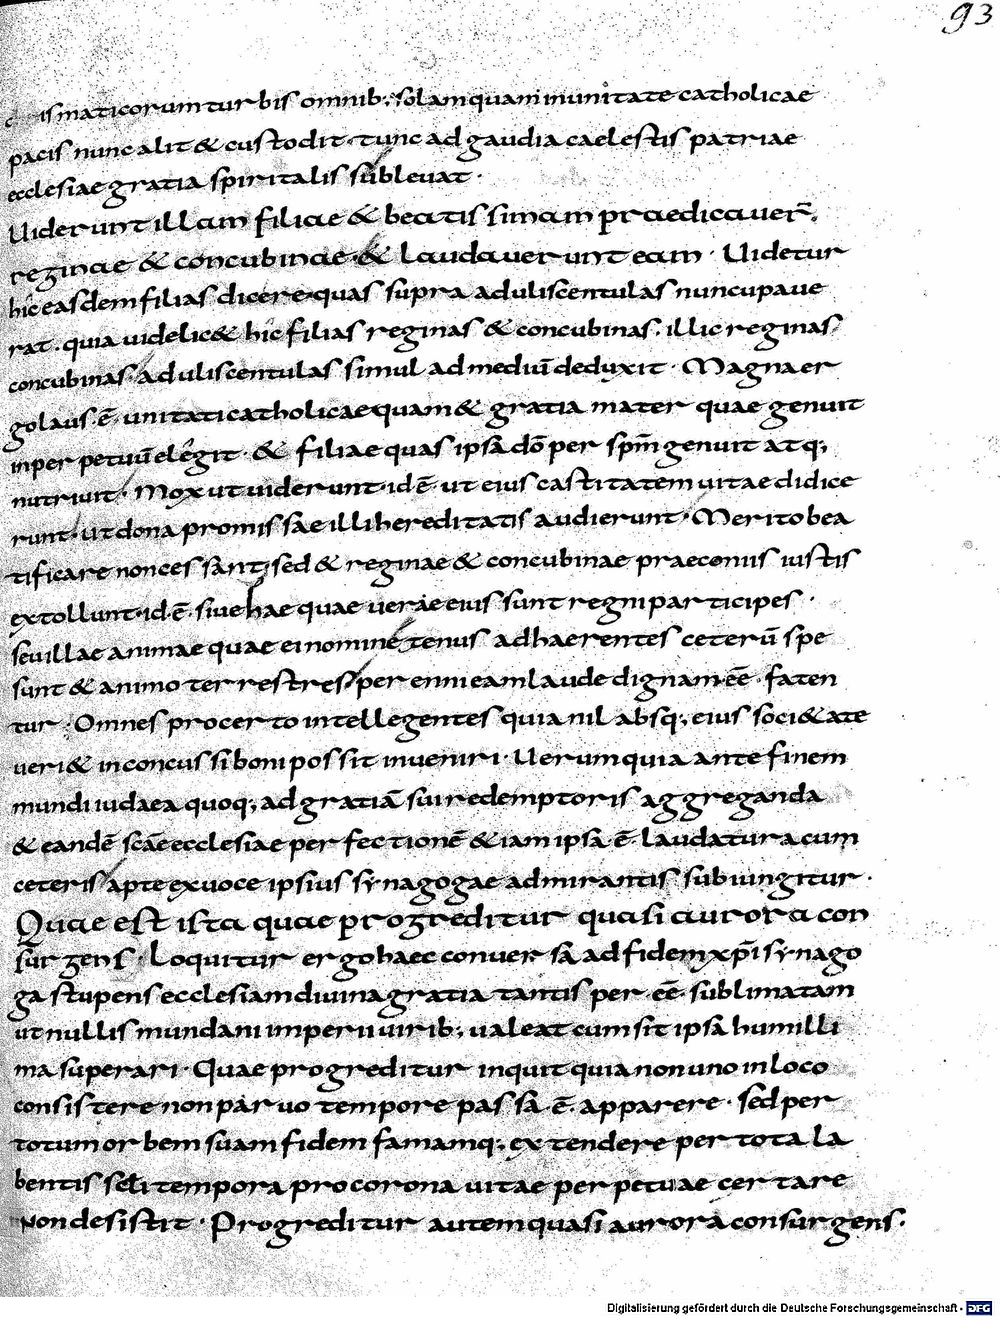 93
ismaticorum turbis omnib; solam quam in unitate catholicae
pacis nunc alit & custodit · tunc ad gaudia caelestis patriae
ecclesiae gratia spiritalis sublevat ·
Uiderunt illam filiae & beatissimam praedicauer̄.
reginae & concubinae · & laudauerunt eam · Uidetur
hic easdem filias dicere quas supra aduliscentulas nuncupaue
rat · quia uidelic& hic filias reginas & concubinas · illic reginas
concubinas aduliscentulas simul ad mediū deduxit · Magna er
go laus · ē · unitati catholicae quam & gratia mater quae genuit
in perpetuū elegit · & filiae quas ipsa dō per sp̄m genuit atq;
nutriuit · Mox ut uiderunt · id ē · ut eius castitatem uitae didice
runt · ut dona promissae illi hereditatis audierunt · Merito bea
tificare non cessant sed & reginae & concubinae praeconiis iustis
extollunt · id · ē · siue hae quae uerae eius sunt regni participes ·
seu illae animae quae ei nomine tenus adhaerentes ceterū spe
sunt & animo terrestres per enni eam laude dignam · eē · faten
tur · Omnes pro certo intellegentes quia nil absq; eius soci&ate
ueri & inconcussi boni possit inueniri · Uerum quia ante finem
mundi iudaea quoq; ad gratiā sui redemptoris aggreganda
& eandē scāe ecclesiae perfectionē & iam ipsa · ē · laudatura cum
ceteris apte ex uoce ipsius synagogae admirantis subiungitur ·
Quae est ista quae progreditur quasi aurora con
surgens · Loquitur ergo haec conuersa ad fidem xp̄i synago
ga stupens ecclesiam diuina gratia tantis per · eē · sublimatam
ut nullis mundani imperii uirib; ualeat cum sit ipsa humilli
ma superari · Quae progreditur inquit quia non uno in loco
consistere non paruo tempore passa · ē · apparere · sed per
totum orbem suam fidem famamq; extendere per tota la
bentis sc̄li tempora pro corona uitae perpetuae certare
non desistit · Progreditur autem quasi aurora consurgens.
Digitalisierung gefördert durch die Deutsche Forschungsgemeinschaft - DFG